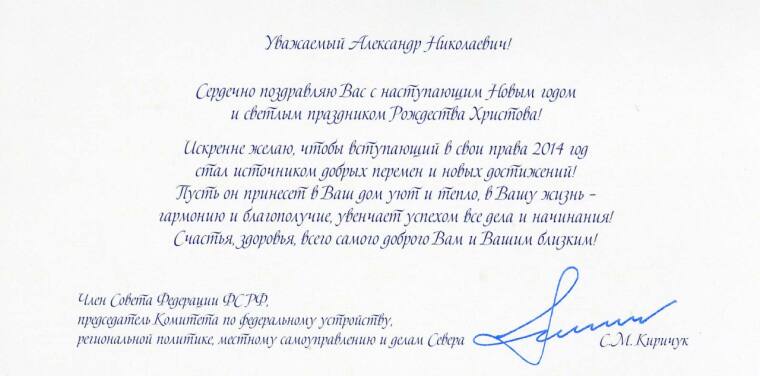 Уважаемый Александр Николаевич!
Сердечно поздравляю Вас с наступающим Новым годом
и светлым праздником Рождества Христова!
Искренне желаю, чтобы вступающий в свои права 2014 год
стал источником добрых перемен и новых достижений!
Пусть он принесет в Ваш дом уют и тепло, в Вашу жизнь –
гармонию и благополучие, увенчает успехом все дела и начинания!
Счастья, здоровья, всего самого доброго Вам и Вашим близким!
Член Совета Федерации ФС РФ,
председатель Комитета по федеральному устройству,
региональной политике, местному самоуправлению и делам Севера
С.М. Киричук